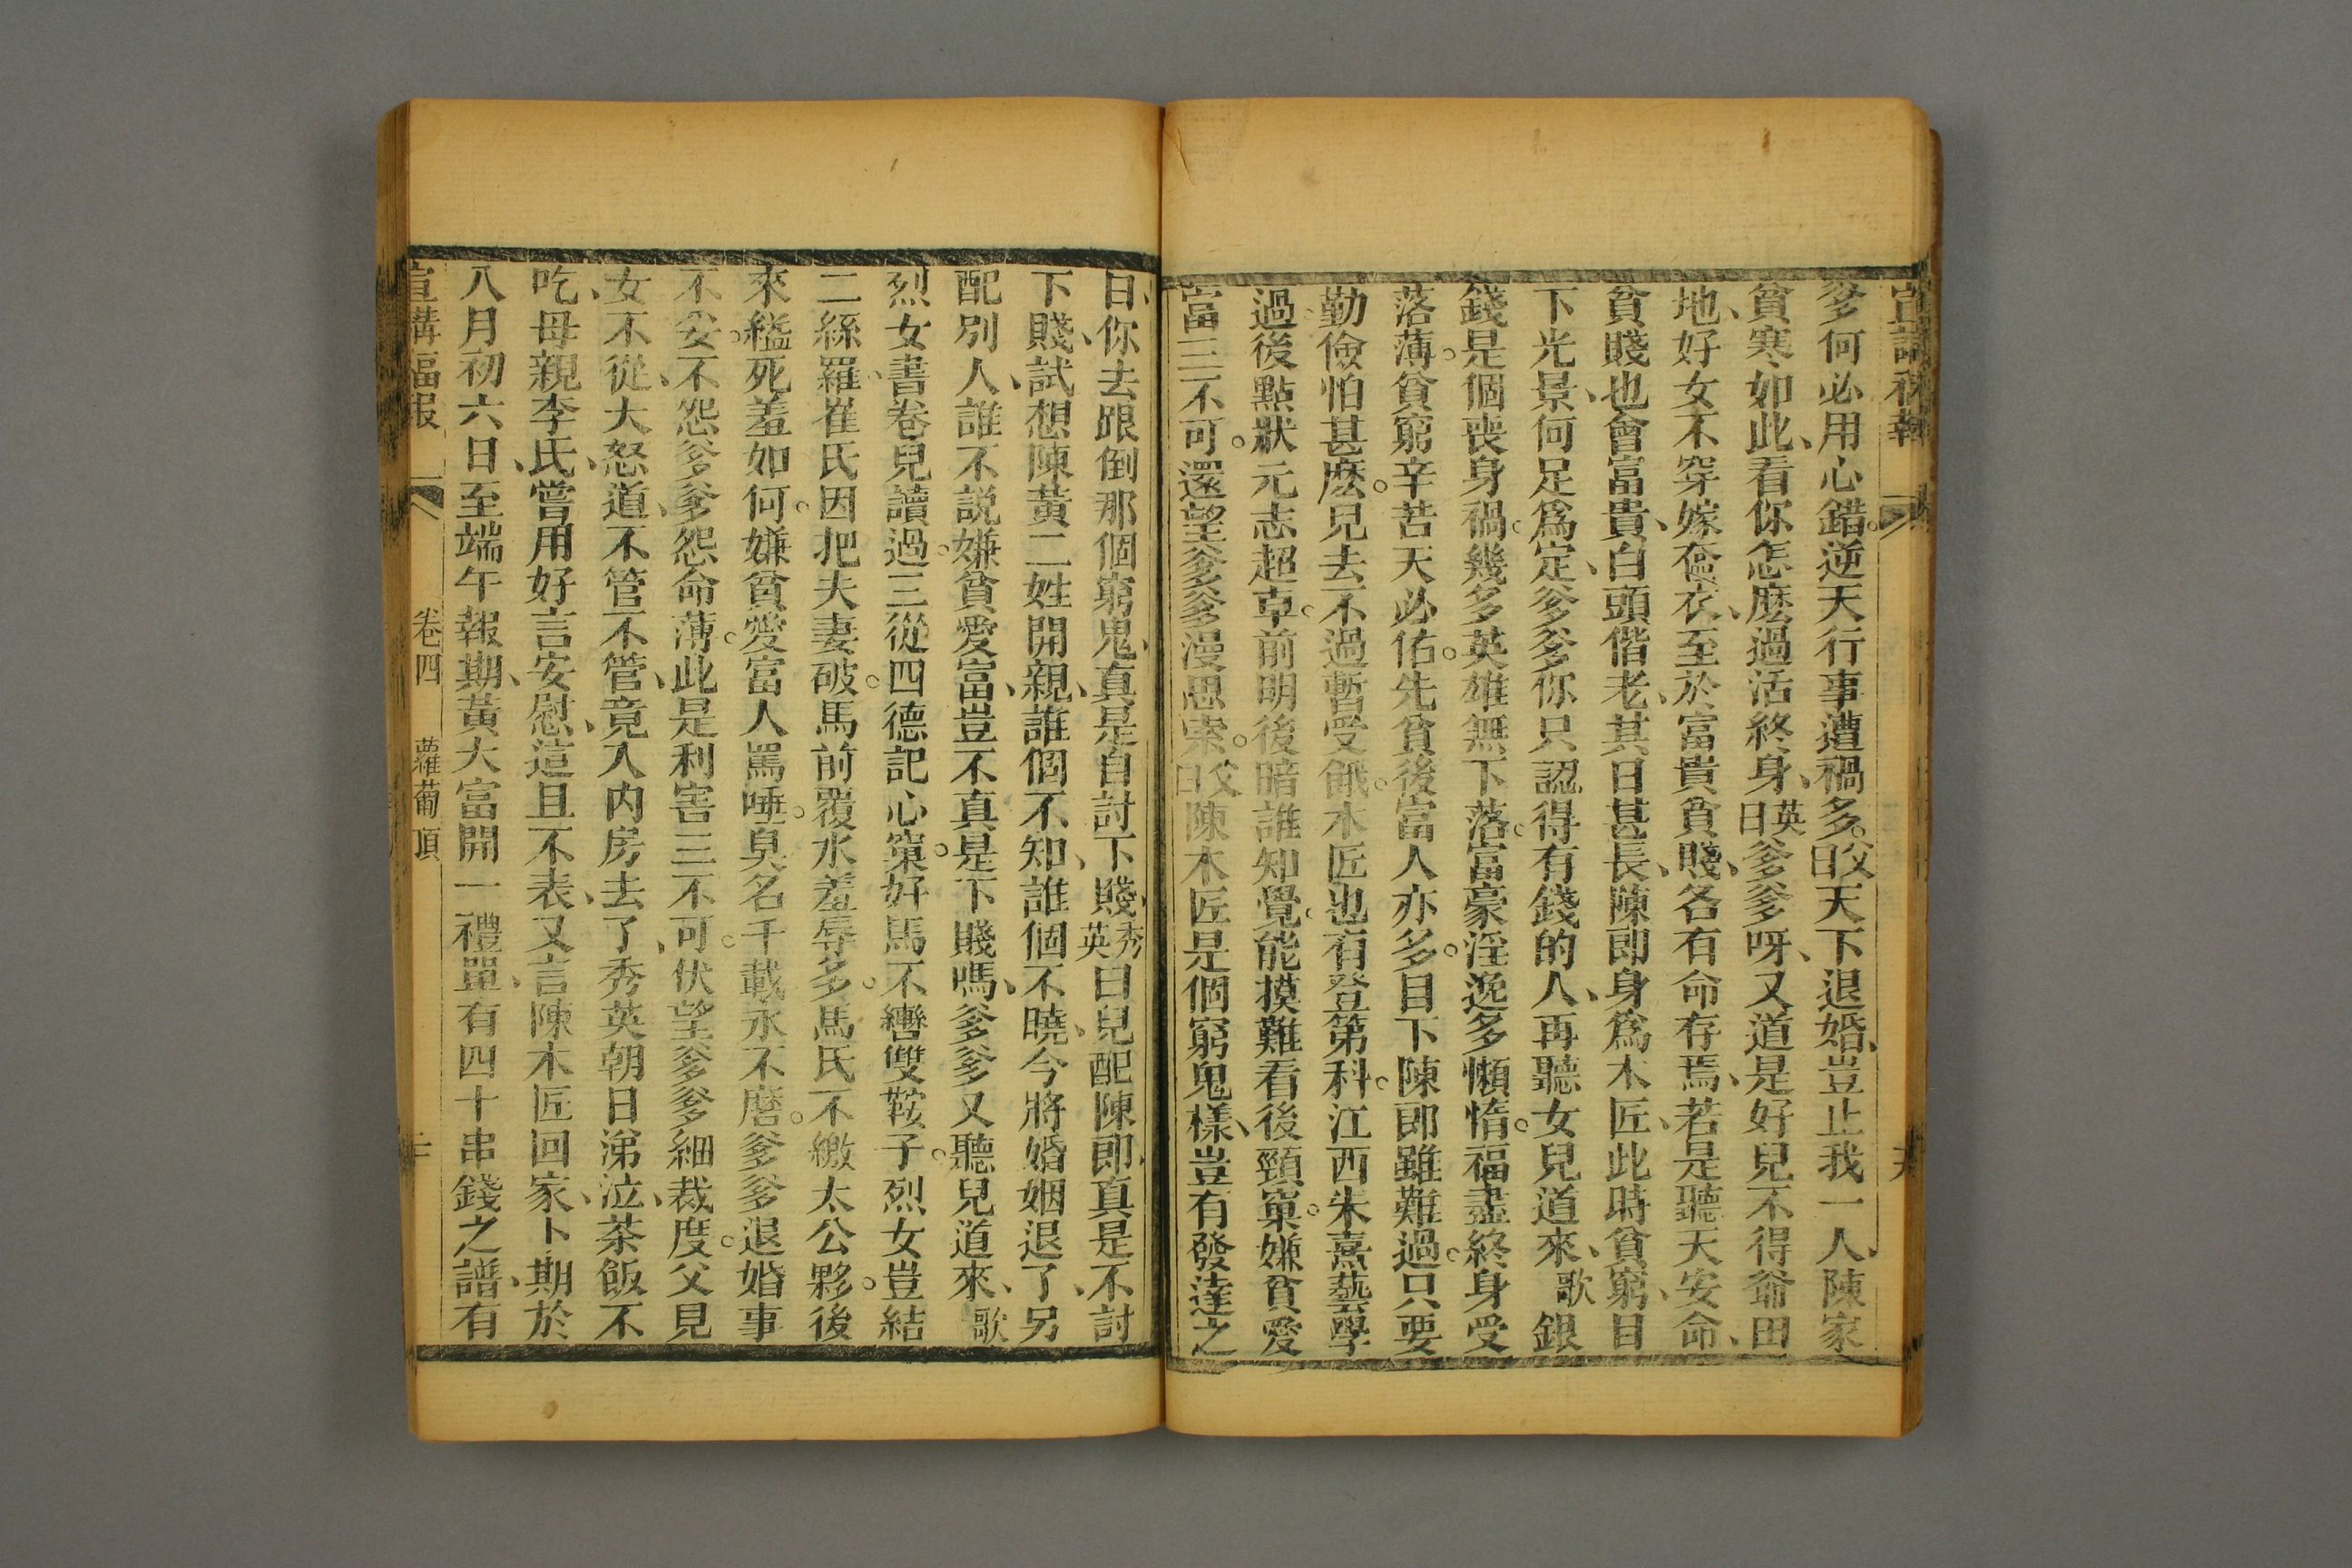 宣講福報
爹何必用心錯。逆天行事遭禍多。父曰天下退婚、豈止我一人、陳家
貧寒如此、看你怎麽過活終身、英曰爹爹呀、又道是好兒不得爺田
地、好女不穿嫁奩衣、至於富貴貧賤、各有命存焉、若是聽天安命、
貧賤也會富貴、白頭偕老、其日甚長、陳郎身爲木匠、此時貧窮、目
下光景、何足爲定、爹爹你只認得有錢的人、再聽女兒道來、歌銀
錢是個喪身禍。幾多英雄無下落。富豪淫逸多懶惰。福盡終身受
落薄。貧窮辛苦天必佑。先貧後富人亦多。目下陳郎雖難過。只要
勤儉怕甚麽。兒去不過暫受餓。木匠也有登第科。江西朱熹藝學
過。後點狀元志超卓。前明後暗誰知覺。能摸難看後頸窠。嫌貧愛
富三不可。還望爹爹漫思索。父曰陳木匠是個窮鬼樣、豈有發達之
日、你去跟倒那個窮鬼、真是自討下賤、秀英曰兒配陳郎、真是不討
下賤、試想陳黃二姓開親、誰個不知、誰個不曉、今將婚姻退了、另
配別人、誰不説嫌貧愛富、豈不真是下賤嗎、爹爹又聽兒道來、歌
烈女書卷兒讀過。三從四德記心窠。好馬不轡雙鞍子。烈女豈結
二絲羅。崔氏因把夫妻破。馬前覆水羞辱多。馬氏不繳太公夥。後
來縊死羞如何。嫌貧愛富人罵唾。臭名千載永不磨。爹爹退婚事
不妥。不怨爹爹怨命薄。此是利害三不可。伏望爹爹細裁度。父見
女不從、大怒道、不管不管、竟入内房去了、秀英朝日涕泣、茶飯不
吃、母親李氏、嘗用好言安慰、這且不表、又言陳木匠回家、卜期於
八月初六日、至端午報期、黃大富開一禮單、有四十串錢之譜、有
宣講福報 卷四 蘿蔔頂